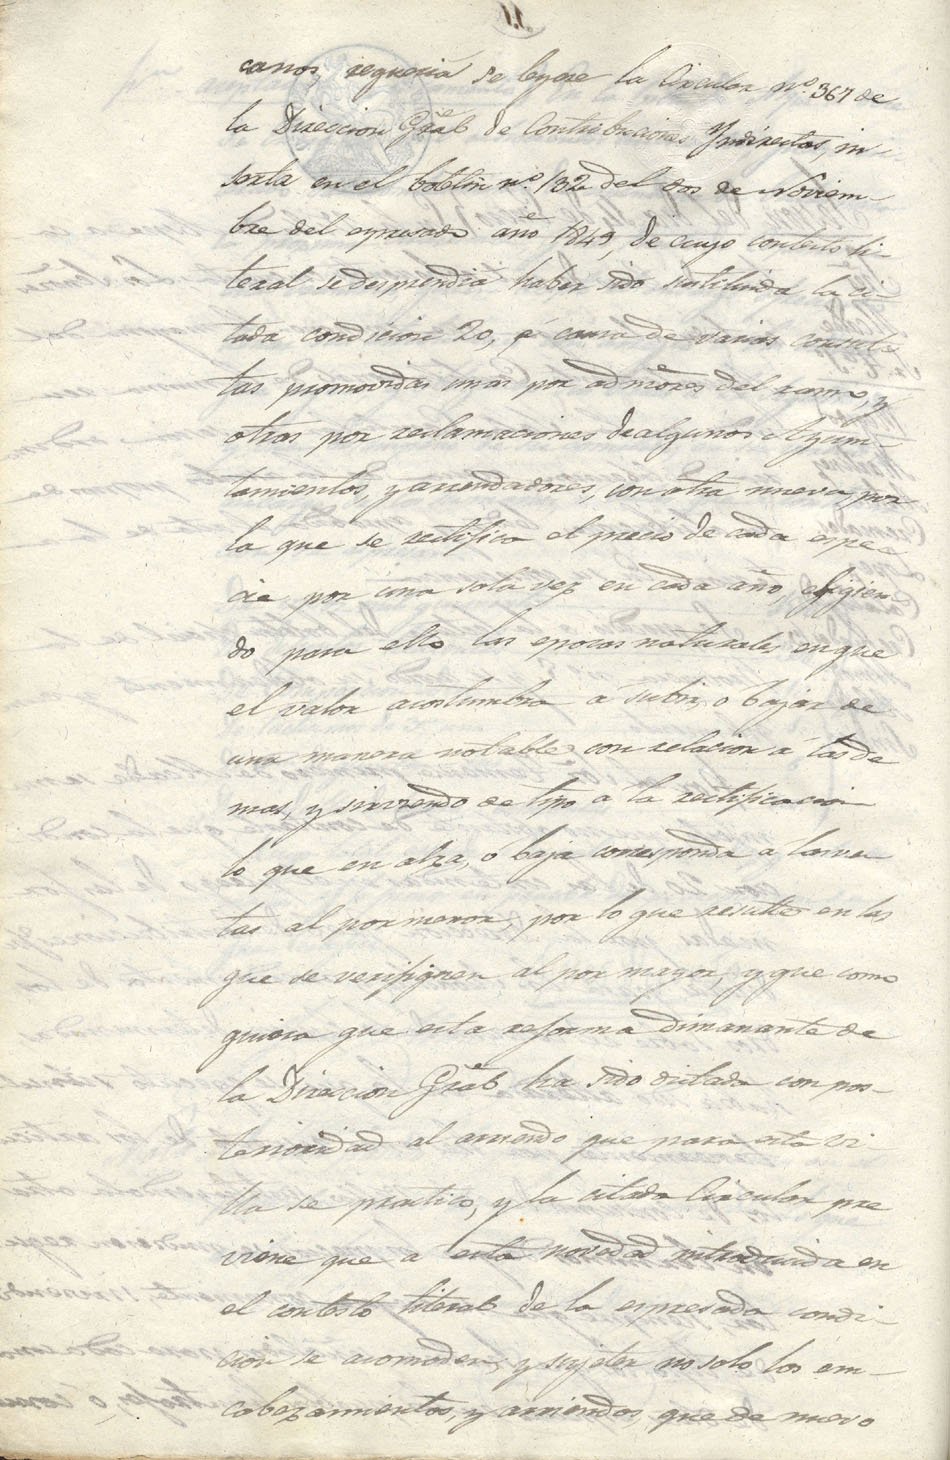 canos, requeria se leyese la Circular nº. 367 de
la Direccion Gral de Contribuciones Yndirectas, in-
serta en el boletin nº. 132 del dos de Noviem-
bre del espresado año 1849, de cuyo contesto li-
teral se desprendia haber sido sustituida la ci-
tada condicion 20, á causa de varias consul-
tas promovidas unas por admores del ramo, y
otras por reclamaciones de algunos Ayun-
tamientos, y arrendadores, con otra nueva por
la que se rectifica el precio de cada espe-
cie por una sola vez en cada año, eligien
do para ello las epocas naturales en que
el valor acostumbra á subir, o bajar de
una manera notable con relacion á las de
mas, y sirviendo de tipo á la rectificacion
lo que en alza, ó baja corresponda a las ven
tas al por menor, por lo que resulte en las
que se verifiquen al por mayor, y que como
quiera que esta reforma dimanante de
la Direccion Gral ha sido dictada con pos-
terioridad al arriendo que para esta Vi-
lla se practico, y la citada Circular pre
viene que á esta novedad introducida en
el contesto literal de la espresada condi-
cion se acomoden, y sujeten no solo los en-
cabezamientos, y arriendos, que de nuevo